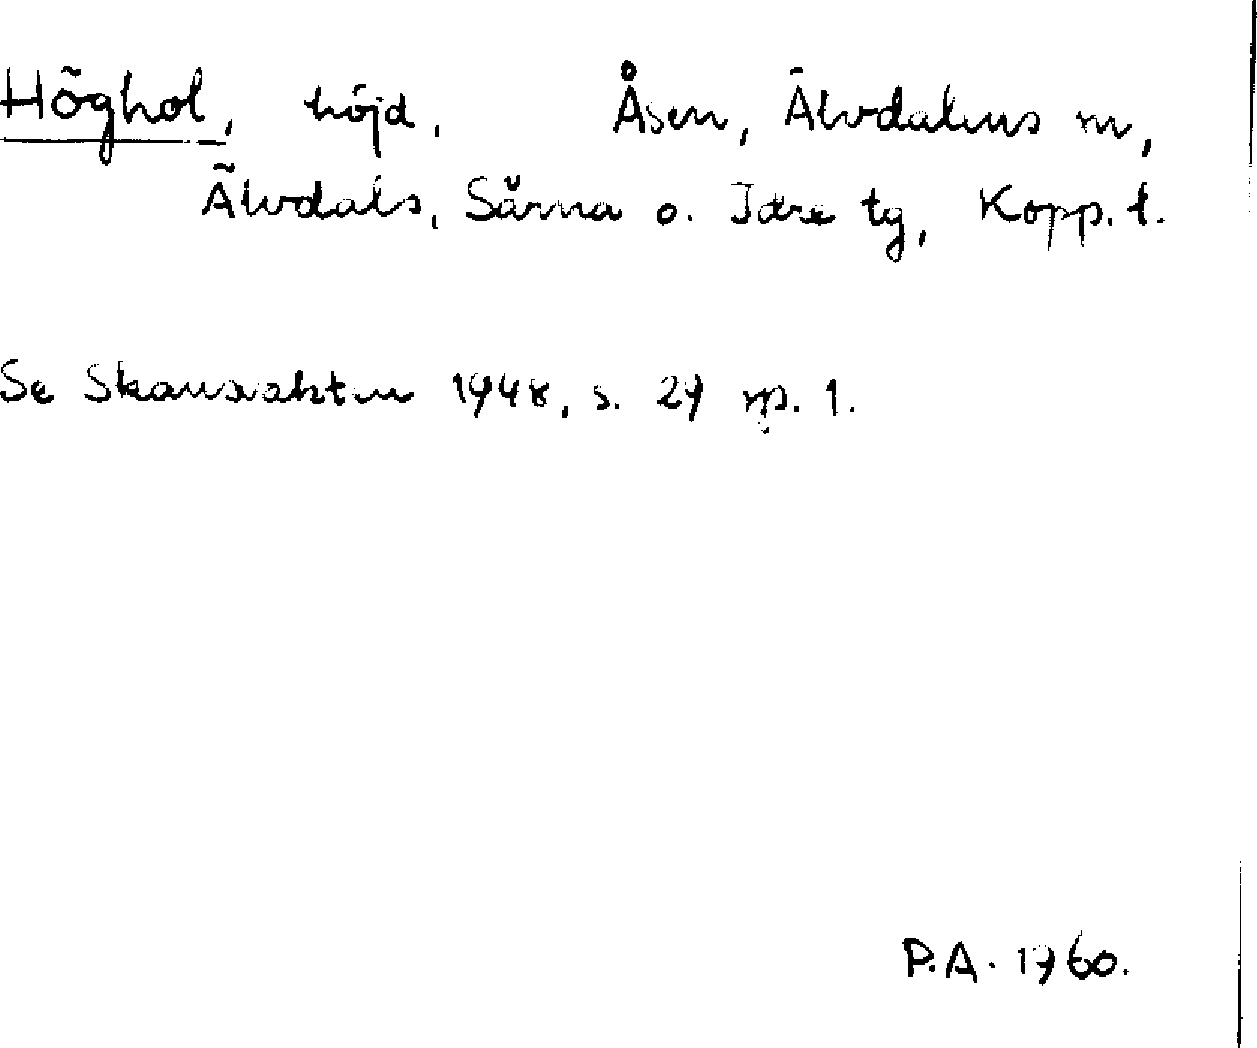 Höghol, höjd. Åsen, Älvdalens m,
Älvdals, Särna o. Idre tg, Kopp. l.
Se Skansvakten 1948, s. 29 sp. 1.
P.A. 1960.